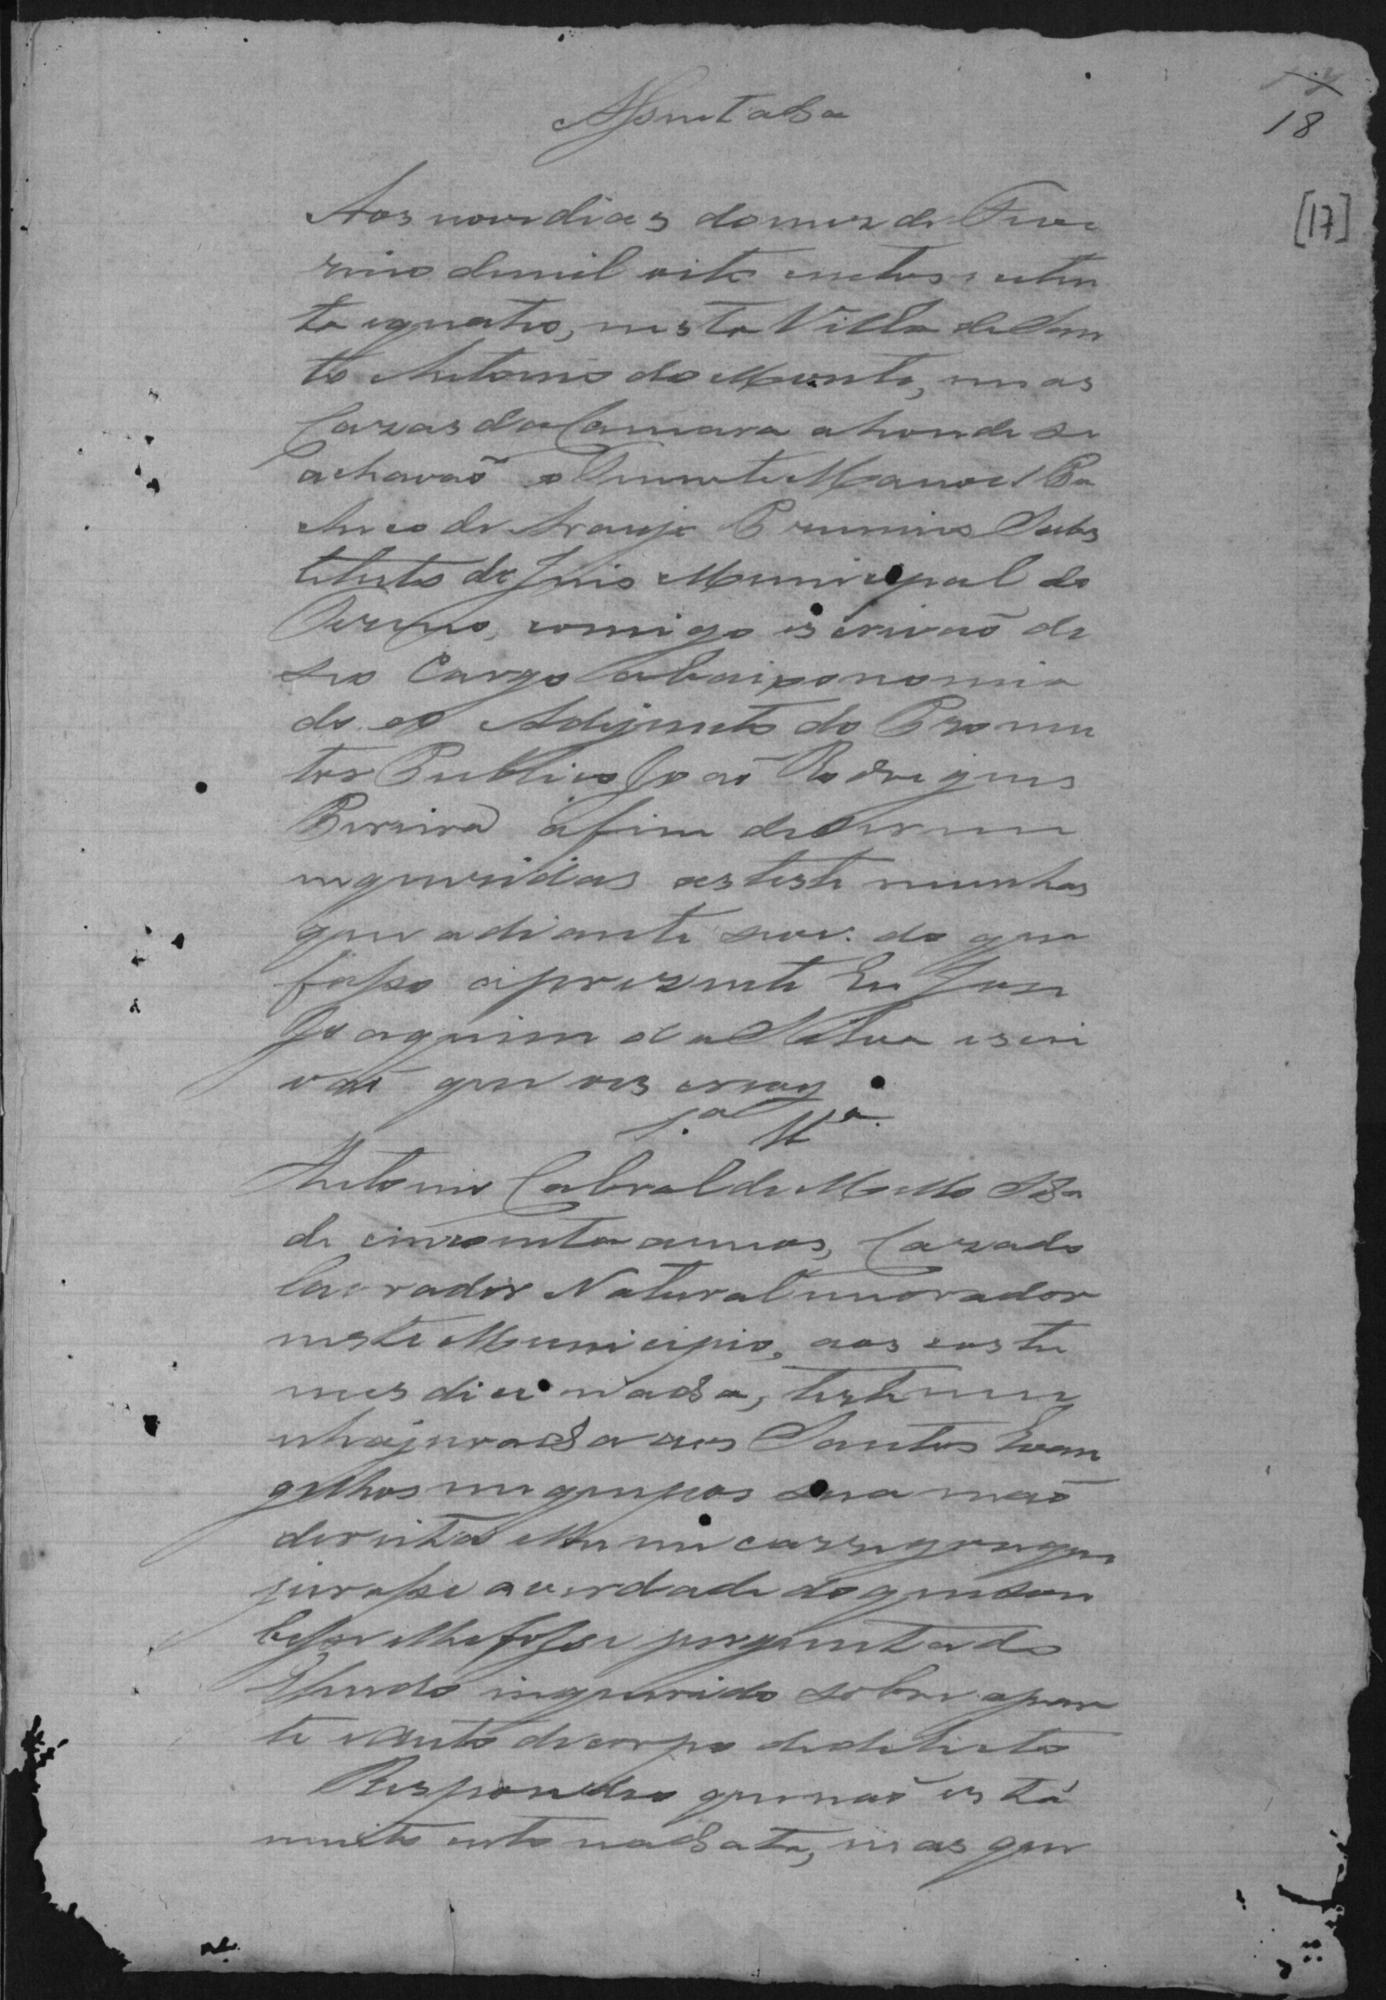 18
[17]
Assentada
Aos nove dias do mez de Feve
reiro de mil oito centos e seten
ta e quatro, nesta Villa de San
to Antonio do Monte, em as
Cazas da Camara ahonde se
achavaõ o Tenente Manoel Pa
checo de Araujo Primeiro Subs
tituto do Juis Municipal do
Termo, comigo escrivaõ de
seo Cargo abaixo nomia
do eo Adijunto do Promu
tor Publico Joaõ Rodrigues
Pereira afim de serem
inqueridas as teste munhas
que adiante se ve. do que
faço a prezente Eu Jose
Joaquim da Silva escri
vaõ que os crevy
1.ª Ttª.
Antonio Cabral de Mello Ida
de cincoenta annos, Cazado
lavrador Natural morador
neste Municipio, aos costu
mes dice nada, testemu
nha jurada aos Santos Evan
gelhos em que pos sua maõ
dereita e lhe em carregou que
jurasse a verdade do que sou
besse e lhe fosse perguntado
Sendo inquerido sobre a par
te e auto de corpo de delicto
Respondeo que naõ está
muito certo na data, mas que